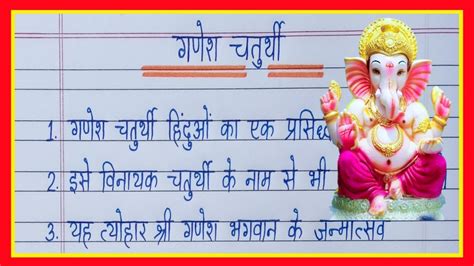 गणेश चतुर्थी
1. गणेश चतुर्थी हिंदुओं का एक प्रसिद्ध
2. इसे विनायक चतुर्थी के नाम से भी
3. यह त्योहार श्री गणेश भगवान के जन्मोत्सव